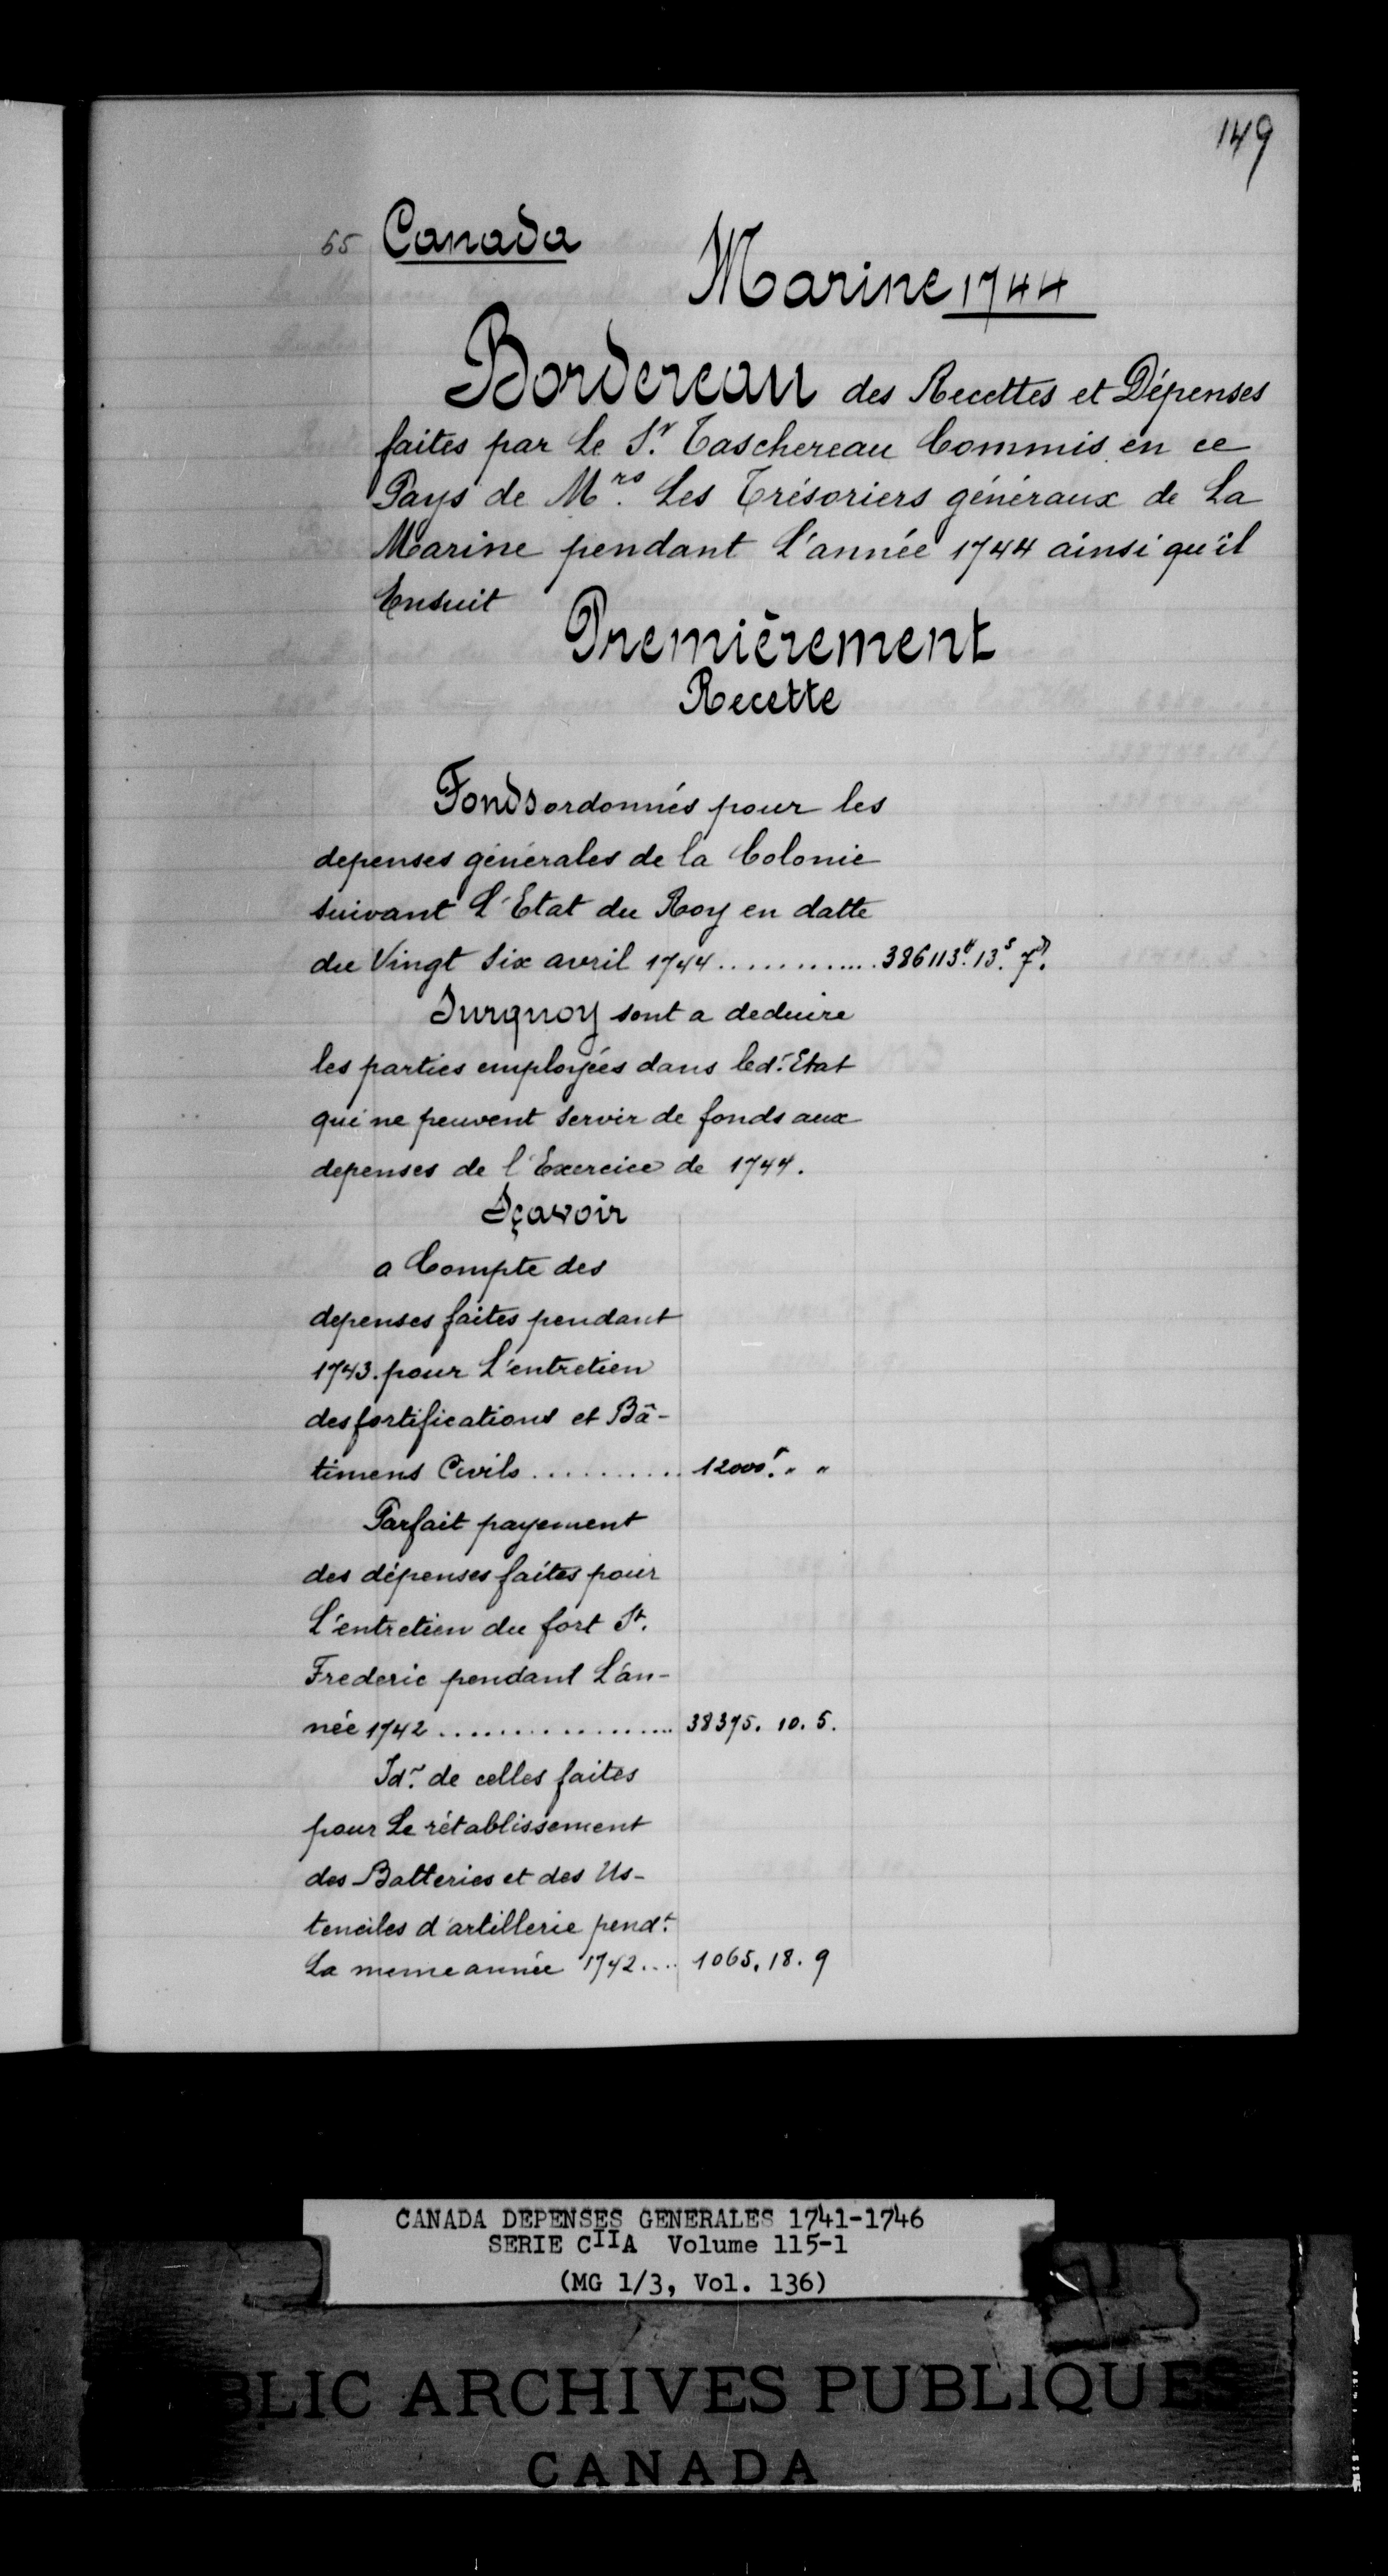 149
65 Canada
Marine 1744
Bordereau des Recettes et Dépenses
faites par Le Sr. Taschereau Commis en ce
Pays de Mrs. Les Trésoriers généraux de La
Marine pendant L'année 1744 ainsi qu'il
Ensuit
Premièrement
Recette
Fonds ordonnés pour les
depenses générales de la Colonie
suivant L'Etat du Roy en datte
du Vingt Six avril 1744............386113₶. 13s. 7d.
Surquoy sont a deduire
les parties employées dans led. Etat
qui ne peuvent servir de fonds aux
depenses de l'Exercice de 1744.
Sçavoir
a Compte des
depenses faites pendant
1743. pour L'entretien
des fortifications et Bâ-
timens Civils .......... 12000₶. " "
Parfait payement
des dépenses faites pour
L'entretien du fort St.
Frederic pendant L'an-
née 1742 .................. 38375. 10. 5.
Id. de celles faites
pour Le rétablissement
des Batteries et des Us-
tenciles d'artillerie pendt.
La meme année 1742.... 1065. 18. 9
CANADA DEPENSES GENERALES 1741-1746
SERIE CIIA Volume 115-1
(MG 1/3, Vol. 136)
BLIC ARCHIVES PUBLIQUES
CANADA